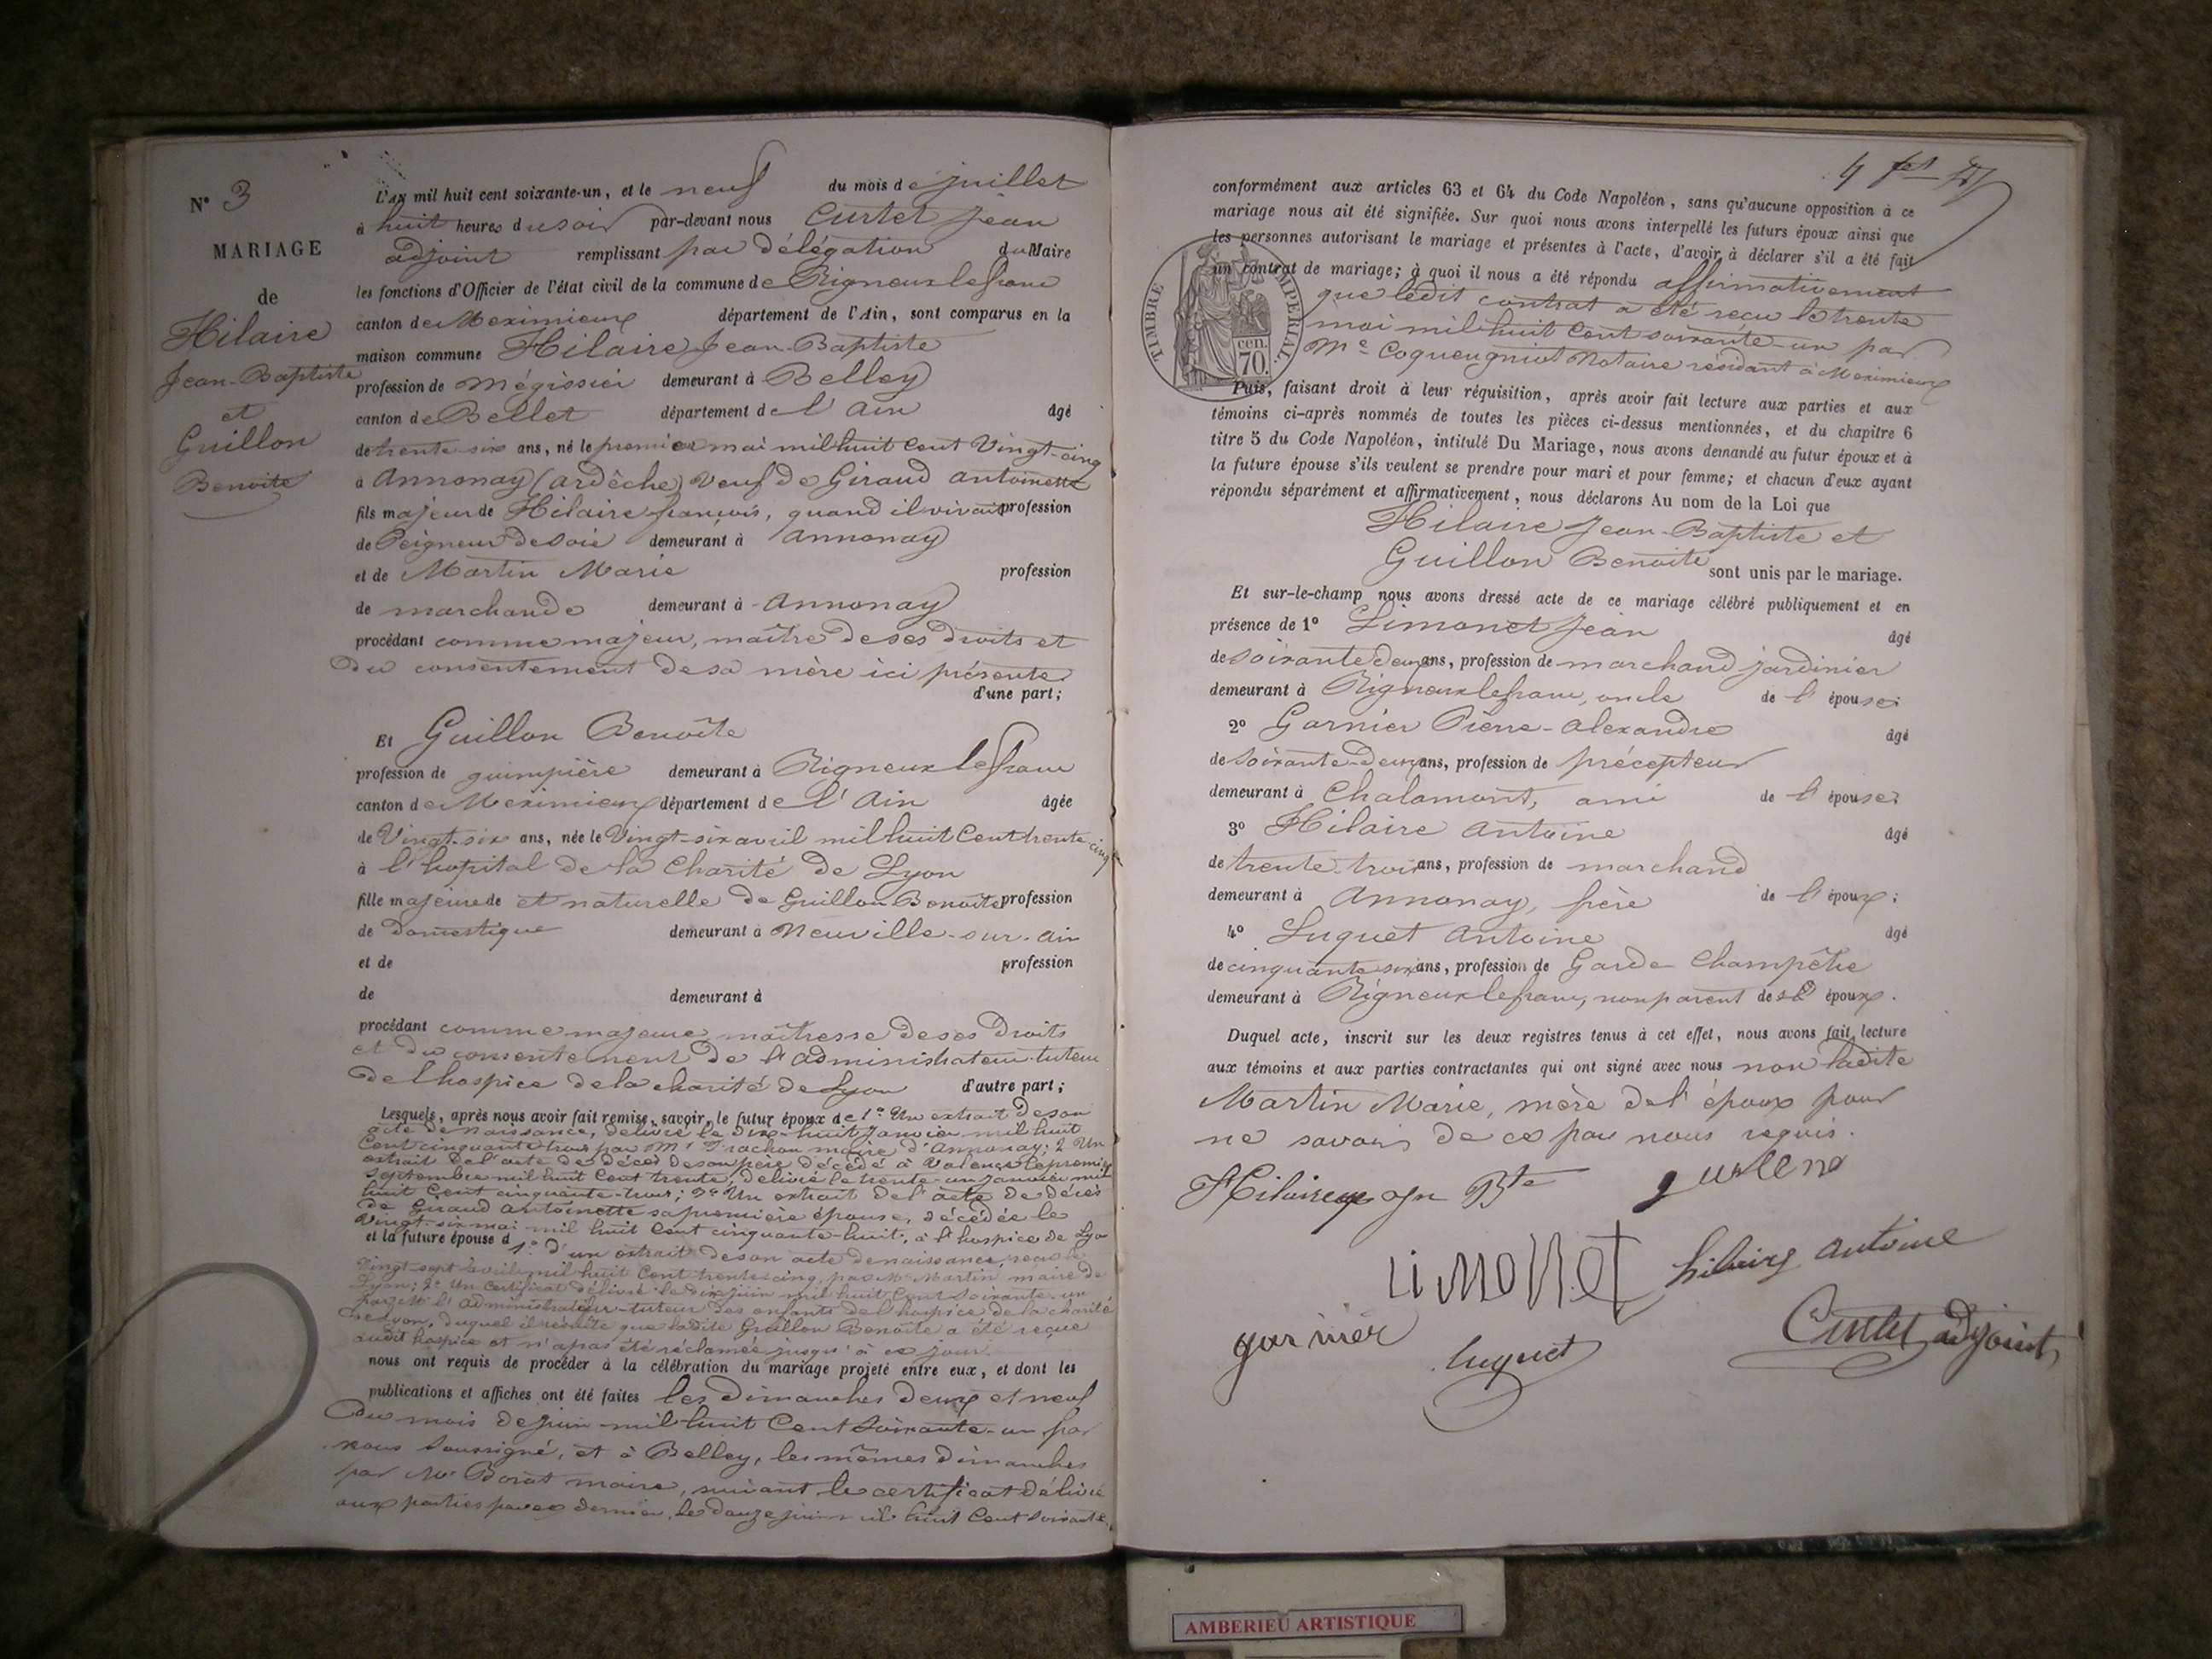 N° 3
MARIAGE
de
Hilaire
Jean-Baptiste
et
Guillon
Benoîte
L'an mil huit cent soixante-un, et le neuf du mois de juillet
à huit heures du soir par-devant nous Curtet Jean
adjoint remplissant par délégation du Maire
les fonctions d'Officier de l'état civil de la commune de Rigneux le franc
canton de Meximieux département de l'Ain, sont comparus en la
maison commune Hilaire Jean-Baptiste
profession de mégissier demeurant à Belley
canton de Bellet département de l'Ain âgé
de trente-six ans, né le premier mai mil huit cent vingt-cinq
à Annonay (ardêche) veuf de Giraud antoinette
fils majeur de Hilaire françois, quand il vivait profession
de Peigneur de soie demeurant à Annonay
et de Martin Marie profession
de marchande demeurant à Annonay
procédant comme majeur, maître de ses droits et
du consentement de sa mère ici présente
d'une part;
Et Guillon Benoîte
profession de guimpière demeurant à Rigneux le franc
canton de Meximieux département de l'Ain âgée
de Vingt-six ans, née le Vingt-six avril mil huit Cent trente cinq
à l'hopital de la Charité de Lyon
fille majeure de et naturelle de Guillon Benoîte profession
de Domestique demeurant à Neuville-sur-Ain
et de profession
de demeurant à
procédant comme majeure, maîtresse de ses droits
et du consentement de l'administrateur-tuteur
de l'hospice de la charité de Lyon d'autre part;
Lesquels, après nous avoir fait remise, savoir, le futur époux de 1° Un extrait de son
acte de naissance, délivré le dix-huit janvier mil huit
Cent cinquante trois par Mr Frachon maire d'Annonay; 2° Un
extrait de l'acte de décès de son père décédé à Valence le premier
septembre mil huit Cent trente, délivré le trente-un janvier mil
huit Cent cinquante-trois; 3° Un extrait de l'acte de décès
de Giraud Antoinette sa première épouse, décédée le
Vingt-six mai mil huit Cent cinquante-huit, à l'hospice de Lyon
et la future épouse d 1° d'un extrait de son acte de naissance, reçu le
Vingt-sept avril mil huit Cent trente cinq, par Mr Martin maire de
Lyon; 2° Un Certificat délivré le dix juin mil huit Cent soixante-un
par Mr l'administrateur-tuteur des enfants de l'hospice de la charité
de Lyon, duquel il résulte que ladite Guillon Benoîte a été reçue
audit hospice et n'a pas été réclamée jusqu'à ce jour
nous ont requis de procéder à la célébration du mariage projeté entre eux, et dont les
publications et affiches ont été faites les Dimanches deux et neuf
du mois de juin mil huit Cent Soixante-un par
nous soussigné, et à Belley, les mêmes dimanches
par Mr Borat maire, suivant le certificat délivré
aux parties par ce dernier, le douze juin mil huit Cent soixante
conformément aux articles 63 et 64 du Code Napoléon, sans qu'aucune opposition à ce
mariage nous ait été signifiée. Sur quoi nous avons interpellé les futurs époux ainsi que
les personnes autorisant le mariage et présentes à l'acte, d'avoir à déclarer s'il a été fait
un contrat de mariage; à quoi il nous a été répondu affirmativement
que ledit contrat a été reçu le trente
mai mil huit Cent soixante-un par
Me Coqueugniot Notaire résidant à Meximieux
TIMBRE IMPERIAL.
cen.
70.
Puis, faisant droit à leur réquisition, après avoir fait lecture aux parties et aux
témoins ci-après nommés de toutes les pièces ci-dessus mentionnées, et du chapitre 6
titre 5 du Code Napoléon, intitulé Du Mariage, nous avons demandé au futur époux et à
la future épouse s'ils veulent se prendre pour mari et pour femme; et chacun d'eux ayant
répondu séparément et affirmativement, nous déclarons Au nom de la Loi que
Hilaire Jean-Baptiste et
Guillon Benoîte sont unis par le mariage.
Et sur-le-champ nous avons dressé acte de ce mariage célébré publiquement et en
présence de 1° Limonet Jean âgé
de soixante deux ans, profession de marchand jardinier
demeurant à Rigneux le franc, oncle de l'épouse;
2° Garnier Pierre-Alexandre âgé
de soixante-deux ans, profession de précepteur
demeurant à Chalamont, ami de l'épouse;
3° Hilaire Antoine âgé
de trente-trois ans, profession de marchand
demeurant à Annonay, frère de l'époux;
4° Luquet Antoine âgé
de cinquante-six ans, profession de Garde Champêtre
demeurant à Rigneux le franc, non parent des époux.
Duquel acte, inscrit sur les deux registres tenus à cet effet, nous avons fait lecture
aux témoins et aux parties contractantes qui ont signé avec nous non ladite
Martin Marie, mère de l'époux pour
ne savoir de ce par nous requis.
Hilaire Jn Bte
Limonet
hilaire antoine
garnier
luquet
Curtet adjoint
AMBERIEU ARTISTIQUE